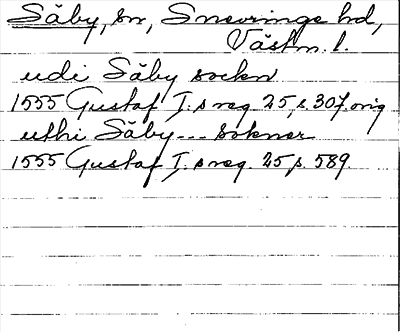 Säby, sn, Snevringe hd,
Västm. l.
udi Säby sockn
1555 Gustaf I:s reg. 25, s. 307. orig
uthi Säby --- soknar
1555 Gustaf I:s reg. 25 s. 589